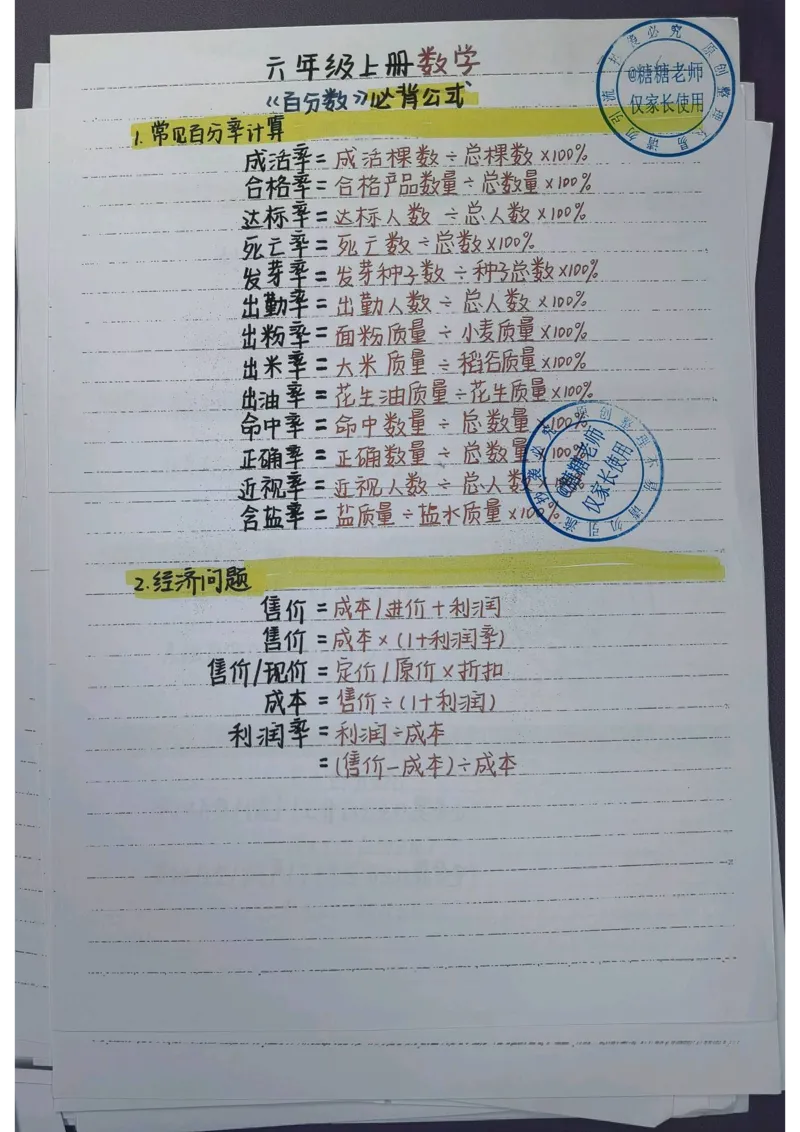 六年级上册数学
《百分数》必背公式
1.常见百分率计算
成活率=成活棵数÷总棵数×100%
合格率=合格产品数量÷总数量×100%
达标率=达标人数÷总人数×100%
死亡率=死亡数÷总数×100%
发芽率=发芽种子数÷种子总数×100%
出勤率=出勤人数÷总人数×100%
出粉率=面粉质量÷小麦质量×100%
出米率=大米质量÷稻谷质量×100%
出油率=花生油质量÷花生质量×100%
命中率=命中数量÷总数量×100%
正确率=正确数量÷总数量×100%
近视率=近视人数÷总人数×100%
含盐率=盐质量÷盐水质量×100%
2.经济问题
售价=成本/进价+利润
售价=成本×(1+利润率)
售价/现价=定价/原价×折扣
成本=售价÷(1+利润)
利润率=利润÷成本
=(售价-成本)÷成本
@糖糖老师
仅家长使用
原创整理不易请勿引流抄袭必究
@糖糖老师
仅家长使用
原创整理不易请勿引流抄袭必究